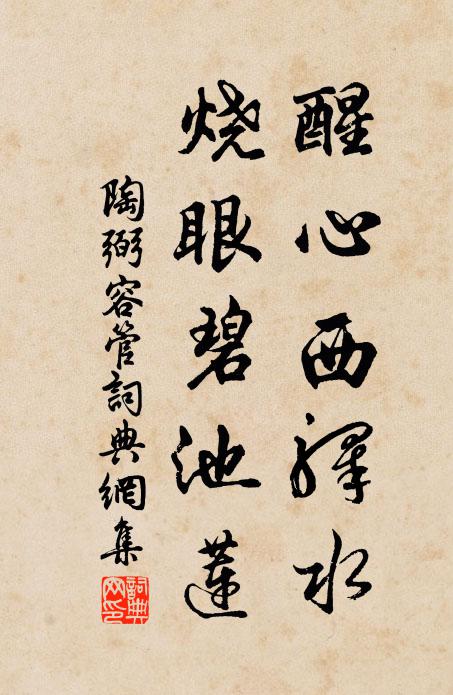 醒心西驛水
烧眼碧池蓮
陶弼容管詞典網集
詞典网印